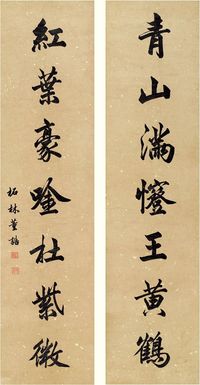 青山滿王黃鶴
紅葉豪唫杜紫微
柘林董誥